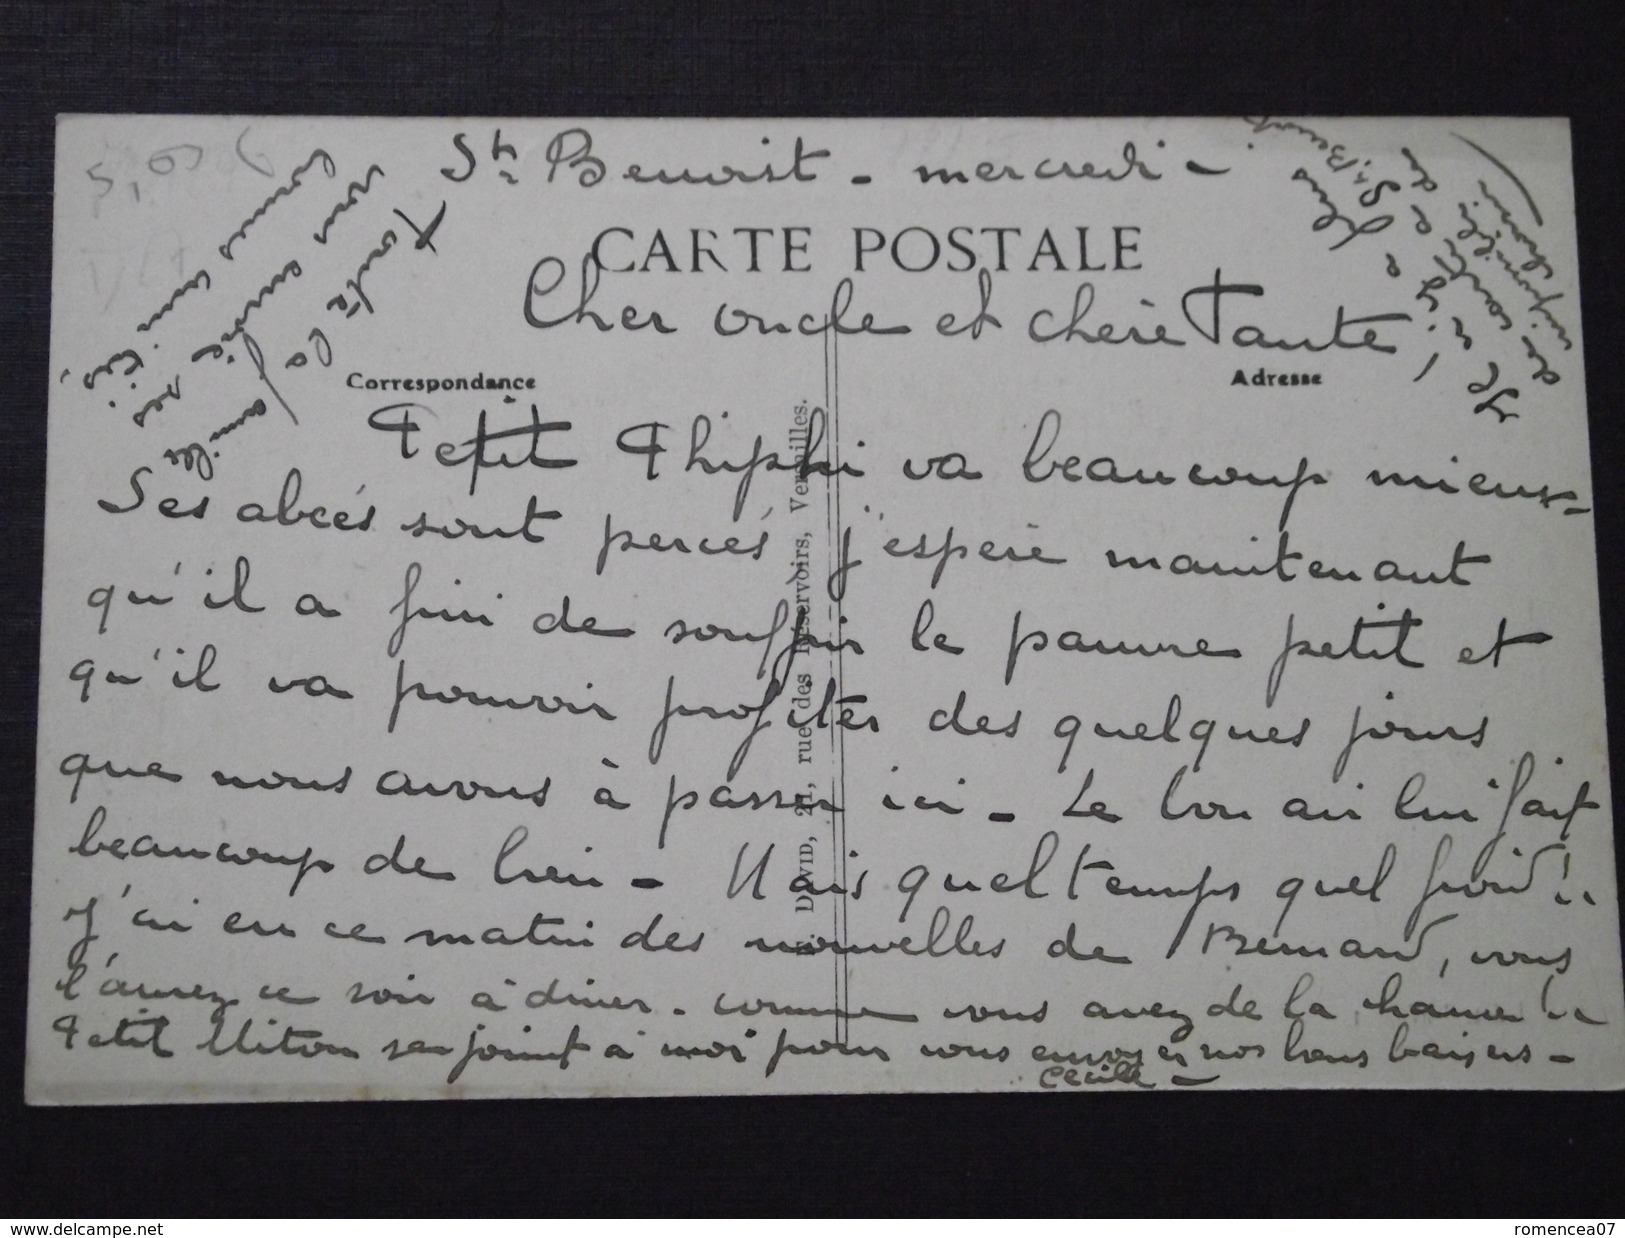 St Benoist - mercredi -
CARTE POSTALE
Cher oncle et chère Tante,
Correspondance
Adresse
Petit Phiphi va beaucoup mieux -
Ses abcés sont percés j'espère maintenant
qu'il a fini de souffrir le pauvre petit et
qu'il va pouvoir profiter des quelques jours
que nous avons à passer ici - Le bon air lui fait
beaucoup de bien - Mais quel temps quel froid !!
J'ai eu ce matin des nouvelles de Bernard, vous
l'aurez ce soir à diner. comme vous avez de la chance !!
Petit Miton se joint à moi pour vous envoyer nos bons baisers -
Cécile -
Toute la famille
vous envoie ses
bonnes amitiés,
DAVID, 21, rue des Réservoirs, Versailles.
St Benoist
5,05 €
www.delcampe.net
romencea07